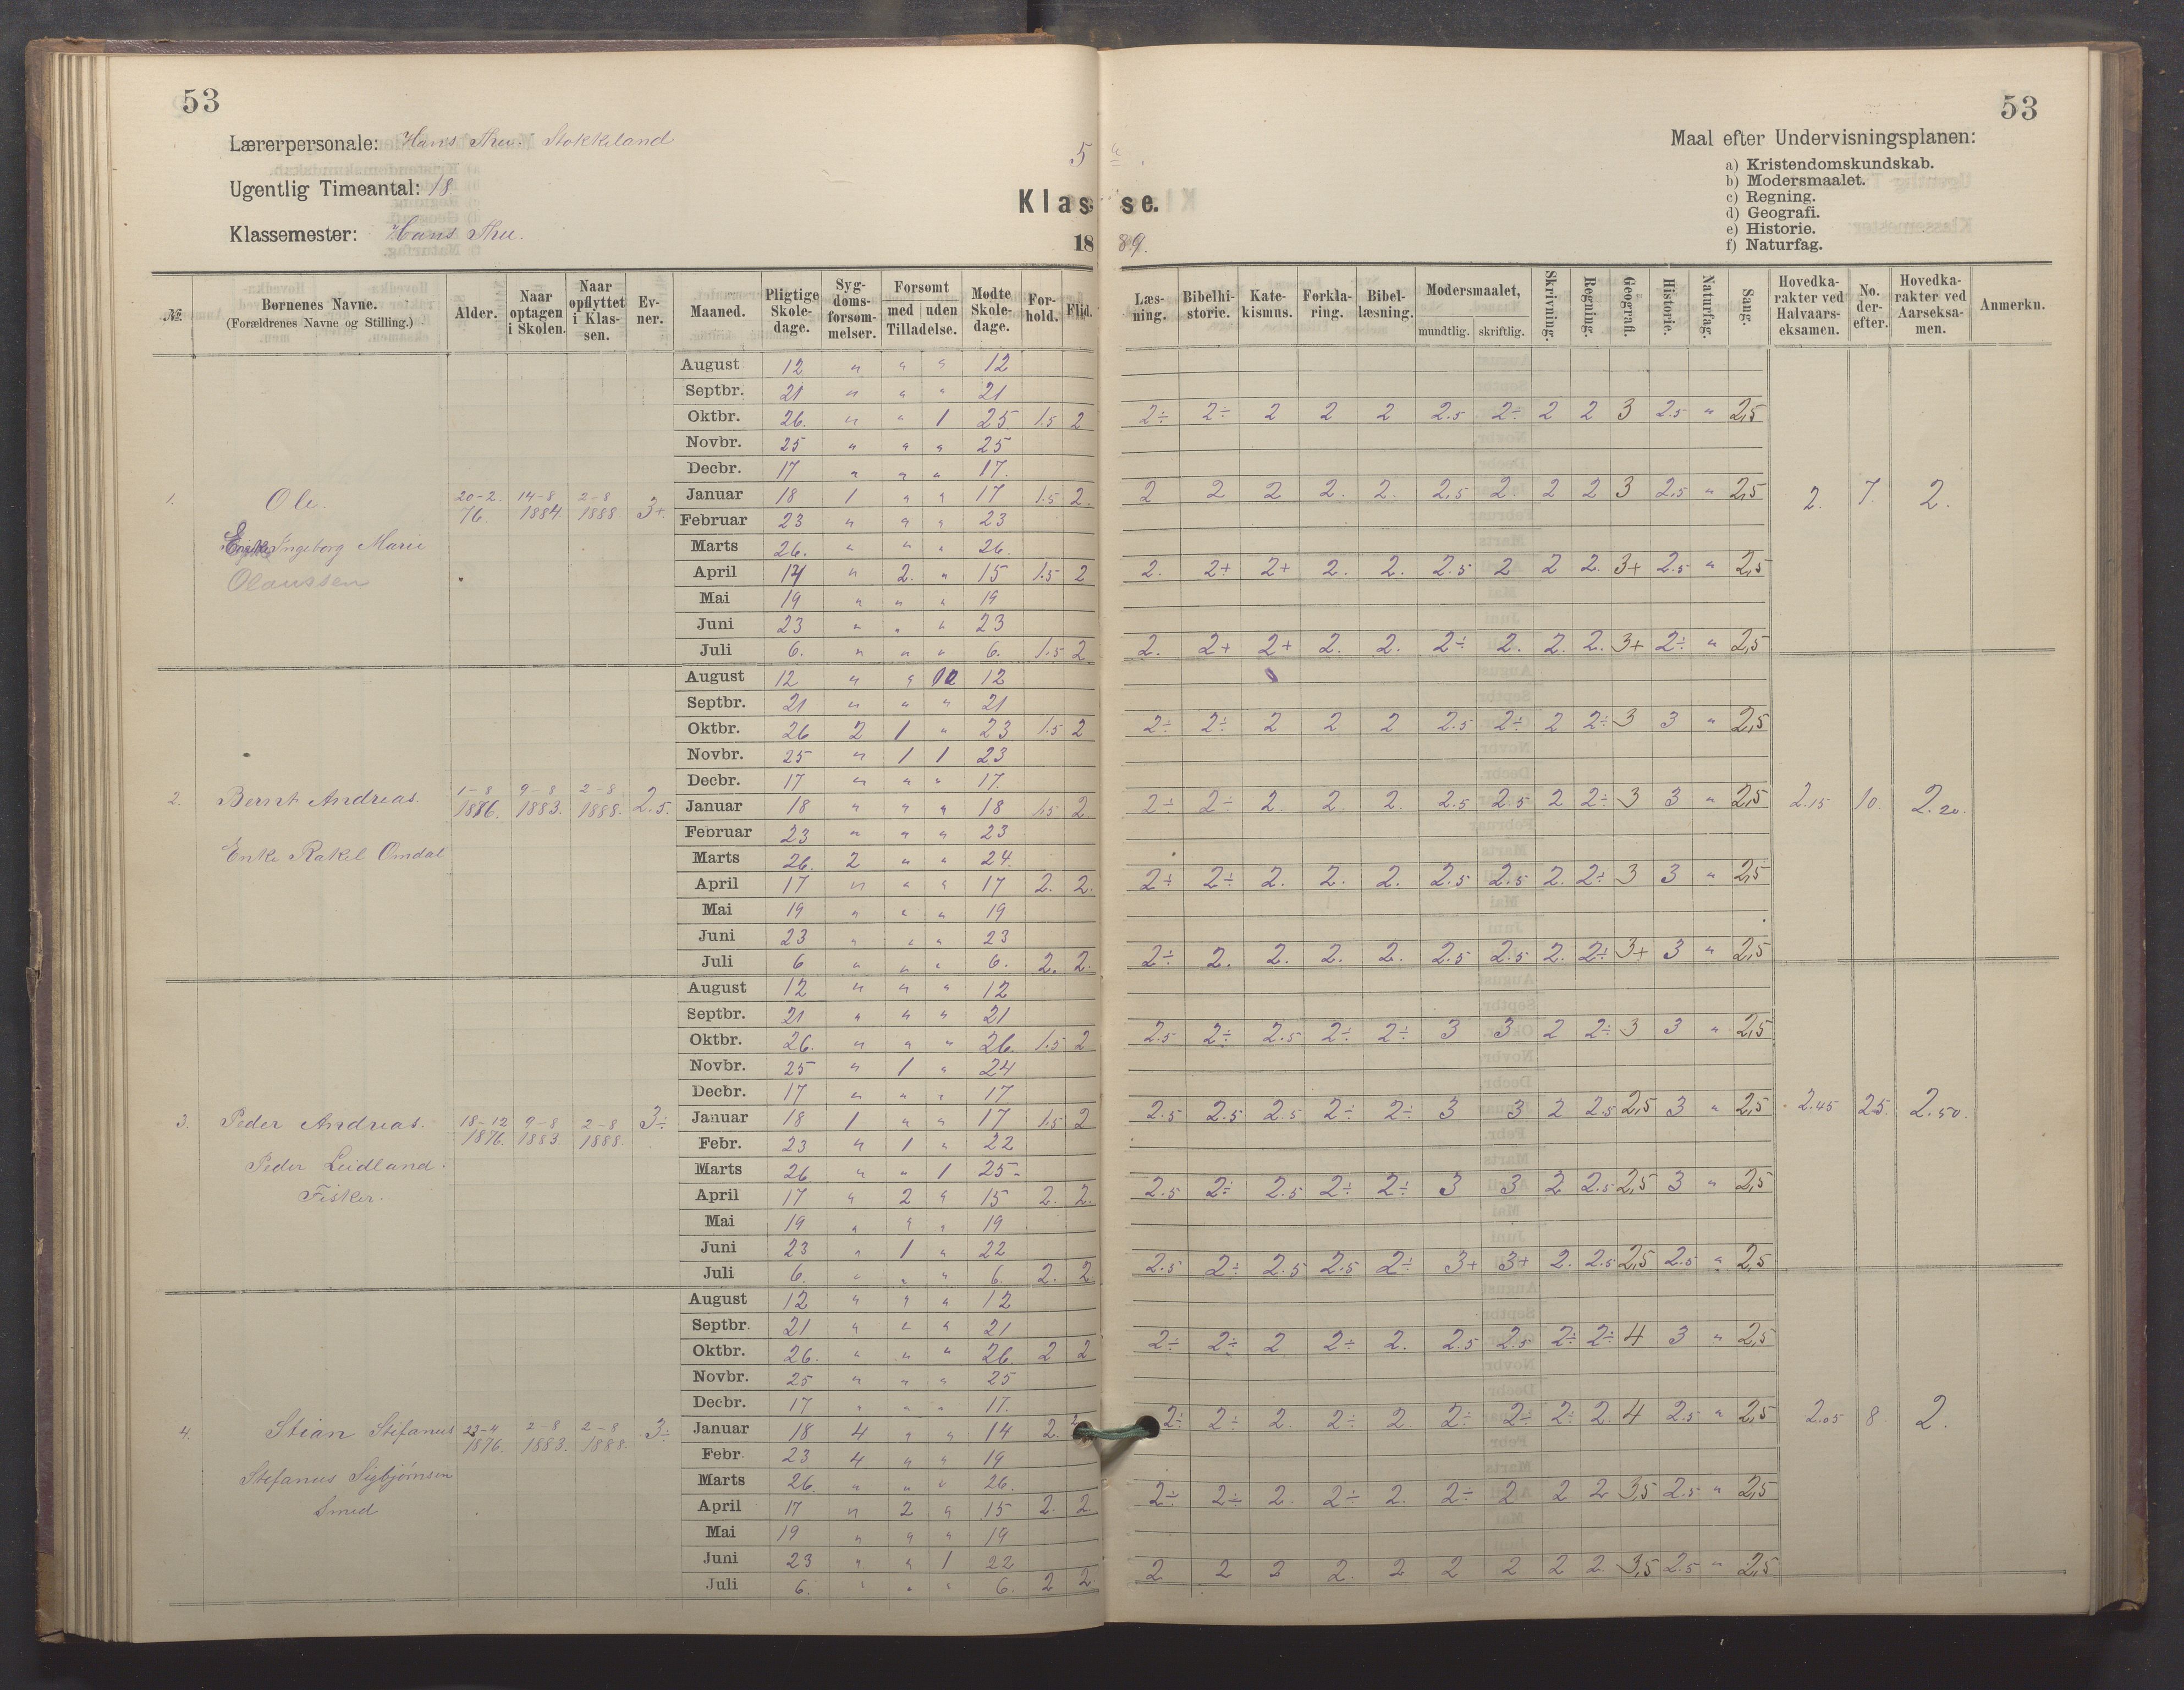 53
53
Lærerpersonale: Hans Thu. Stokkeland
Ugentlig Timeantal: 18
Klassemester: Hans Thu.
5
Klasse.
1889.
Maal efter Undervisningsplanen:
a) Kristendomskundskab.
b) Modersmaalet.
c) Regning.
d) Geografi.
e) Historie.
f) Naturfag.
№. Børnenes Navne. (Forældrenes Navne og Stilling.) Alder. Naar optagen i Skolen. Naar opflyttet i Klassen. Evner. Maaned. Pligtige Skoledage. Sygdomsforsømmelser. Forsømt med uden Tilladelse. Mødte Skoledage. Forhold. Flid. Læsning. Bibelhistorie. Katekismus. Forklaring. Bibellæsning. Modersmaalet, mundtlig. skriftlig. Skrivning. Regning. Geografi. Historie. Naturfag. Sang. Hovedkarakter ved Halvaarseksamen. No. derefter. Hovedkarakter ved Aarseksamen. Anmerkn.
1. Ole. 20-2. 76. 14-8 1884 2-8 1888. 3+. 2. 7. 2.
Ingeborg Marie
Olaussen
August 12 " " " 12
Septbr. 21 " " " 21
Oktbr. 26. " " 1 25. 1.5 2 2÷ 2÷ 2 2 2 2.5 2÷ 2 2 3 2.5 " 2,5
Novbr. 25 " " " 25
Decbr. 17 " " " 17.
Januar 18 1 " " 17 1.5 2. 2 2 2 2. 2. 2,5 2. 2 2 3 2,5 " 2,5
Februar 23 " " " 23
Marts 26. " " " 26.
April 17 " 2. " 15 1.5 2 2. 2+ 2+ 2. 2. 2.5 2 2 2. 3+ 2.5 " 2,5
Mai 19 " " " 19
Juni 23 " " " 23
Juli 6. " " " 6. 1.5 2 2. 2+ 2+ 2. 2. 2÷ 2. 2. 2. 3+ 2÷ " 2,5
2. Bernt Andreas. 1-8 1876. 9-8 1883. 2-8 1888. 2.5. 2.15 10. 2.20.
Enke Rakel Omdal
August 12 " " 12
Septbr. 21 " " " 21
Oktbr. 26 2 1 " 23 1.5 2 2÷ 2÷ 2 2 2 2.5 2÷ 2 2÷ 3 3 " 2,5
Novbr. 25 " 1 1 23
Decbr. 17 " " " 17.
Januar 18 " " " 18 1.5 2 2÷ 2÷ 2. 2. 2. 2.5 2.5 2 2÷ 3 3 " 2,5
Februar 23 " " " 23
Marts 26. 2 " " 24.
April 17 " " " 17 2. 2. 2÷ 2÷ 2. 2. 2. 2.5 2.5 2. 2÷ 3 3 " 2,5
Mai 19 " " " 19
Juni 23 " " " 23
Juli 6 " " " 6. 2. 2. 2÷ 2. 2. 2. 2. 2.5 2.5 2. 2÷ 3+ 3 " 2,5
3. Peder Andreas. 18-12 1876. 9-8 1883. 2-8 1888. 3÷ 2.45 25. 2.50.
Peder Leidland.
Fisker.
August 12 " " " 12
Septbr. 21 " " " 21
Oktbr. 26. " " " 26. 1.5 2 2.5 2÷ 2.5 2÷ 2÷ 3 3 2 2÷ 3 3 " 2,5
Novbr. 25 " 1 " 24
Decbr. 17 " " " 17
Januar 18 1 " " 17 1.5 2 2.5 2.5 2.5 2÷ 2÷ 3 3 2 2.5 2,5 3 " 2,5
Febr. 23 " 1 " 22
Marts 26 " " 1 25
April 17 " 2 " 15 2. 2. 2.5 2÷ 2.5 2÷ 2÷ 3 3 2 2.5 2,5 3 " 2,5
Mai 19 " " " 19
Juni 23 " 1 " 22
Juli 6. " " " 6. 2. 2 2.5 2÷ 2.5 2.5 2÷ 3+ 3+ 2. 2.5 2,5 2.5 " 2,5
4. Stian Stefanus 23-4 1876. 2-8 1883. 2-8 1888. 3÷ 2.05 8 2.
Stefanus Sigbjørnsen
Smed
August 12 " " " 12
Septbr. 21 " " " 21
Oktbr. 26. " " " 26. 2 2 2÷ 2÷ 2 2÷ 2. 2.5 2.5 2÷ 2÷ 4 3 " 2,5
Novbr. 25 " " " 25
Decbr. 17 " " " 17.
Januar 18 4 " " 14 2. 2 2÷ 2÷ 2. 2÷ 2. 2÷ 2÷ 2÷ 2. 4 2.5 " 2,5
Febr. 23 4 " " 19
Marts 26. " " " 26.
April 17 " 2 " 15 2. 2. 2÷ 2÷ 2. 2÷ 2. 2÷ 2 2 2 3,5 2.5 " 2,5
Mai 19 " " " 19
Juni 23 " " 1 22
Juli 6. " " " 6. 2 2 2 2 2 2. 2 2 2 2 2. 3,5 2.5 " 2,5